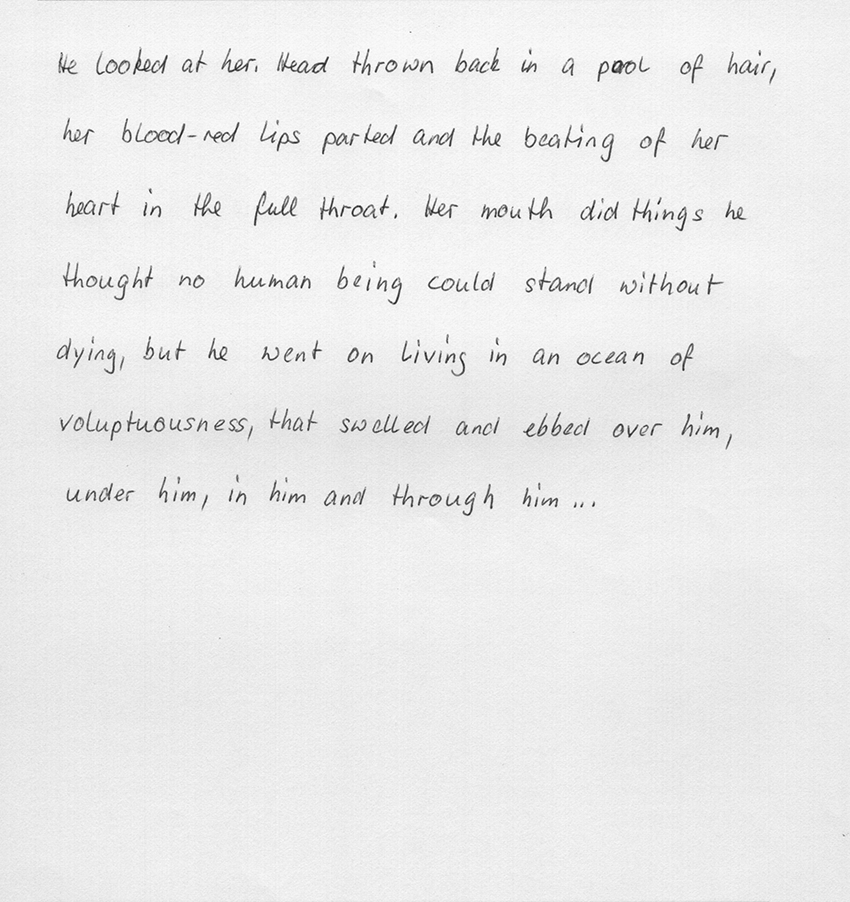 He looked at her. Head thrown back in a pool of hair,
her blood-red lips parted and the beating of her
heart in the full throat. Her mouth did things he
thought no human being could stand without
dying, but he went on living in an ocean of
voluptuousness, that swelled and ebbed over him,
under him, in him and through him ...